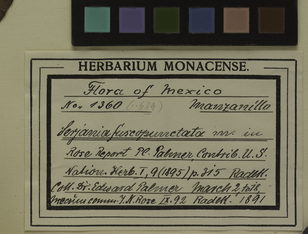 HERBARIUM MONACENSE.
Flora of Mexico
No. 1360 Manzanillo
Serjania fuscopunctata in
Rose Report Pl. Palmer Contrib. U.S.
Nation. Herb. I, 9 (1895) p. 315 Radlk.
Coll. Dr. Edward Palmer March 2,
comm. J. N. Rose IX. 92 Radlk. 1891